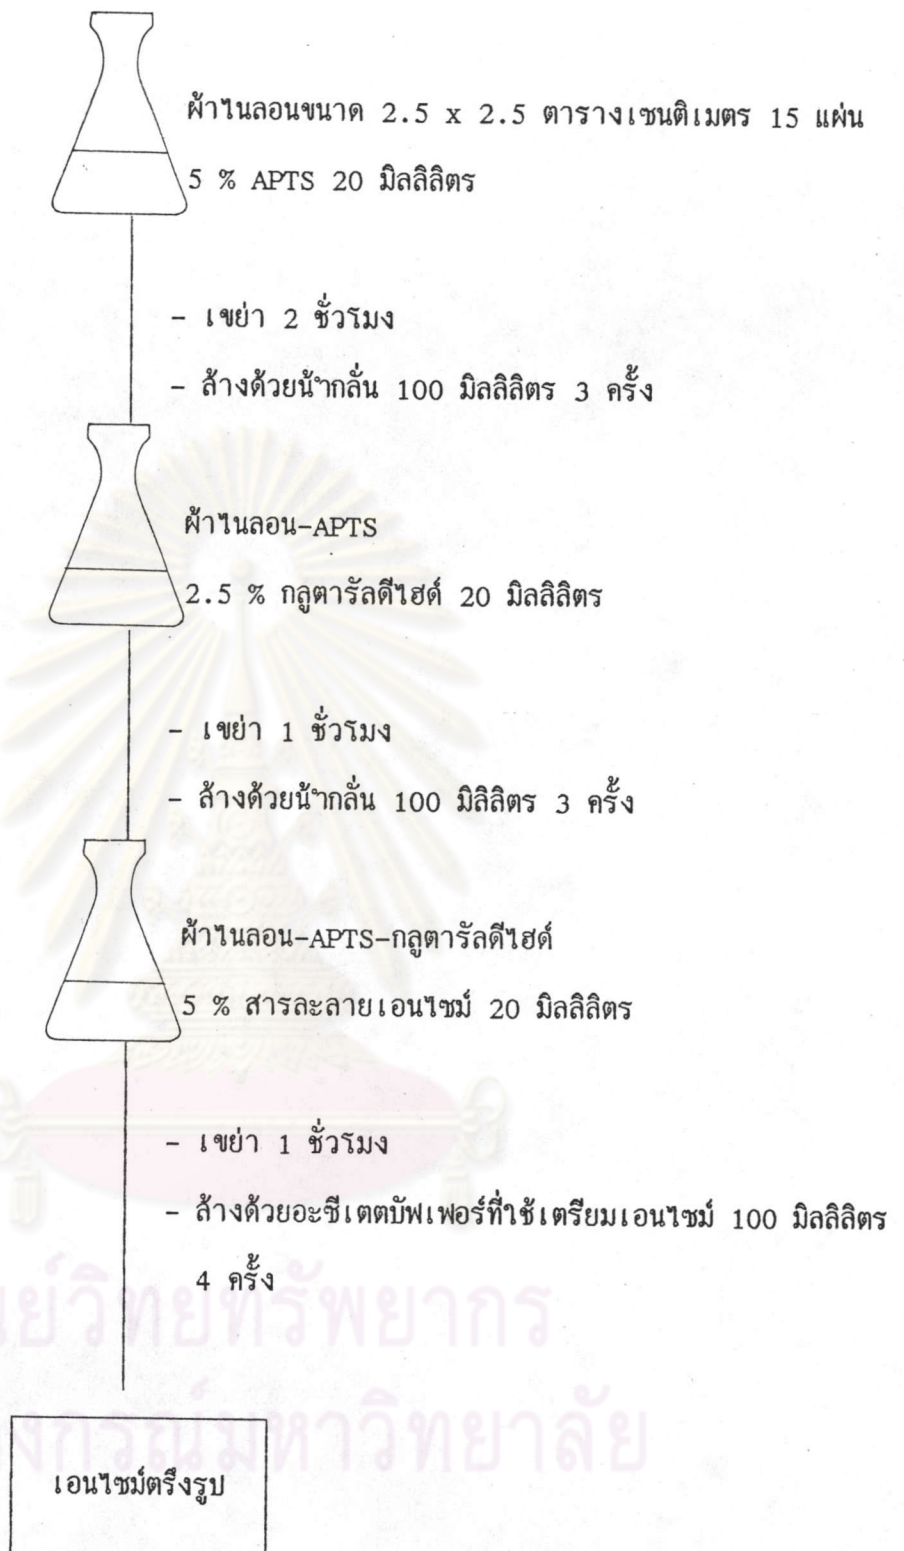 ผ้าไนลอนขนาด 2.5 x 2.5 ตารางเซนติเมตร 15 แผ่น
5 % APTS 20 มิลลิลิตร
- เขย่า 2 ชั่วโมง
- ล้างด้วยน้ำกลั่น 100 มิลลิลิตร 3 ครั้ง
ผ้าไนลอน-APTS
2.5 % กลูตารัลดีไฮด์ 20 มิลลิลิตร
- เขย่า 1 ชั่วโมง
- ล้างด้วยน้ำกลั่น 100 มิลิลิตร 3 ครั้ง
ผ้าไนลอน-APTS-กลูตารัลดีไฮด์
5 % สารละลายเอนไซม์ 20 มิลลิลิตร
- เขย่า 1 ชั่วโมง
- ล้างด้วยอะซีเตตบัฟเฟอร์ที่ใช้เตรียมเอนไซม์ 100 มิลลิลิตร
4 ครั้ง
นย์วิทยทรัพยากร
งกรณ์มหาวิทยาลัย
เอนไซม์ตรึงรูป